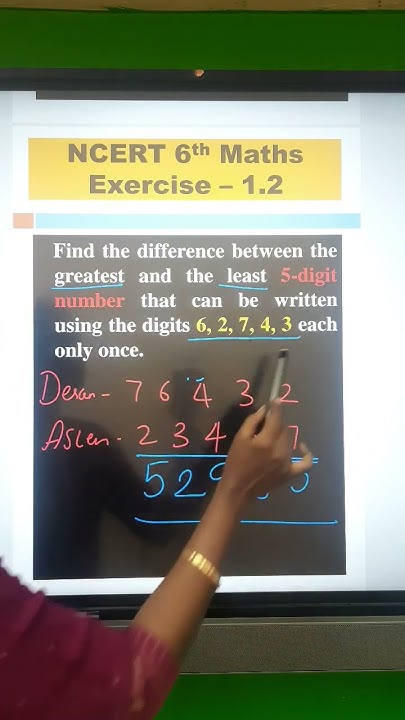 NCERT 6th Maths
Exercise – 1.2
Find the difference between the
greatest and the least 5-digit
number that can be written
using the digits 6, 2, 7, 4, 3 each
only once.
Descen - 7 6 4 3 2
Ascen - 2 3 4 7
5 2 9 5